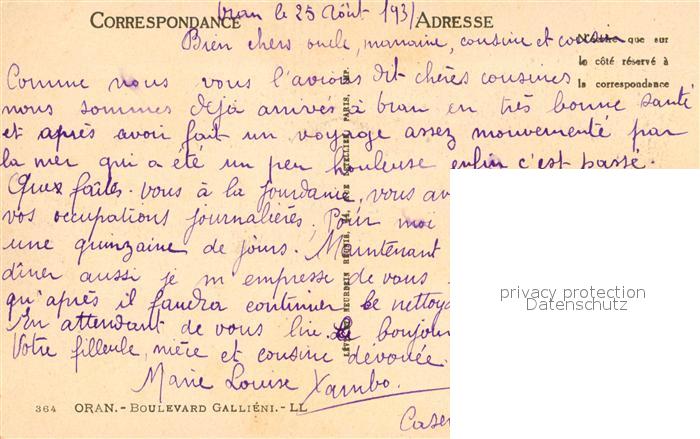 Correspondance
Oran le 25 Août 1931
Adresse
Bien chers oncle, marraine, cousine et cousin
que sur
le côté réservé à
la correspondance
Comme nous vous l'avions dit chères cousines
nous sommes déjà arrivés à Oran en très bonne santé
et après avoir fait un voyage assez mouvementé par
la mer qui a été un peu houleuse enfin c'est passé.
Que faîtes-vous à la Jourdanie, vous av
vos occupations journalières. Pour moi
une quinzaine de jours. Maintenant
dîner aussi je m'empresse de vous
qu'après il faudra continuer le nettoya
En attendant de vous lire. Le bonjour
Votre filleule, nièce et cousine dévouée.
Marie Louise Xambo.
Caser
LÉVY ET NEURDEIN RÉUNIS, 44, RUE LETELLIER, PARIS, IMP.
364 ORAN.- Boulevard Galliéni.- LL
privacy protection
Datenschutz